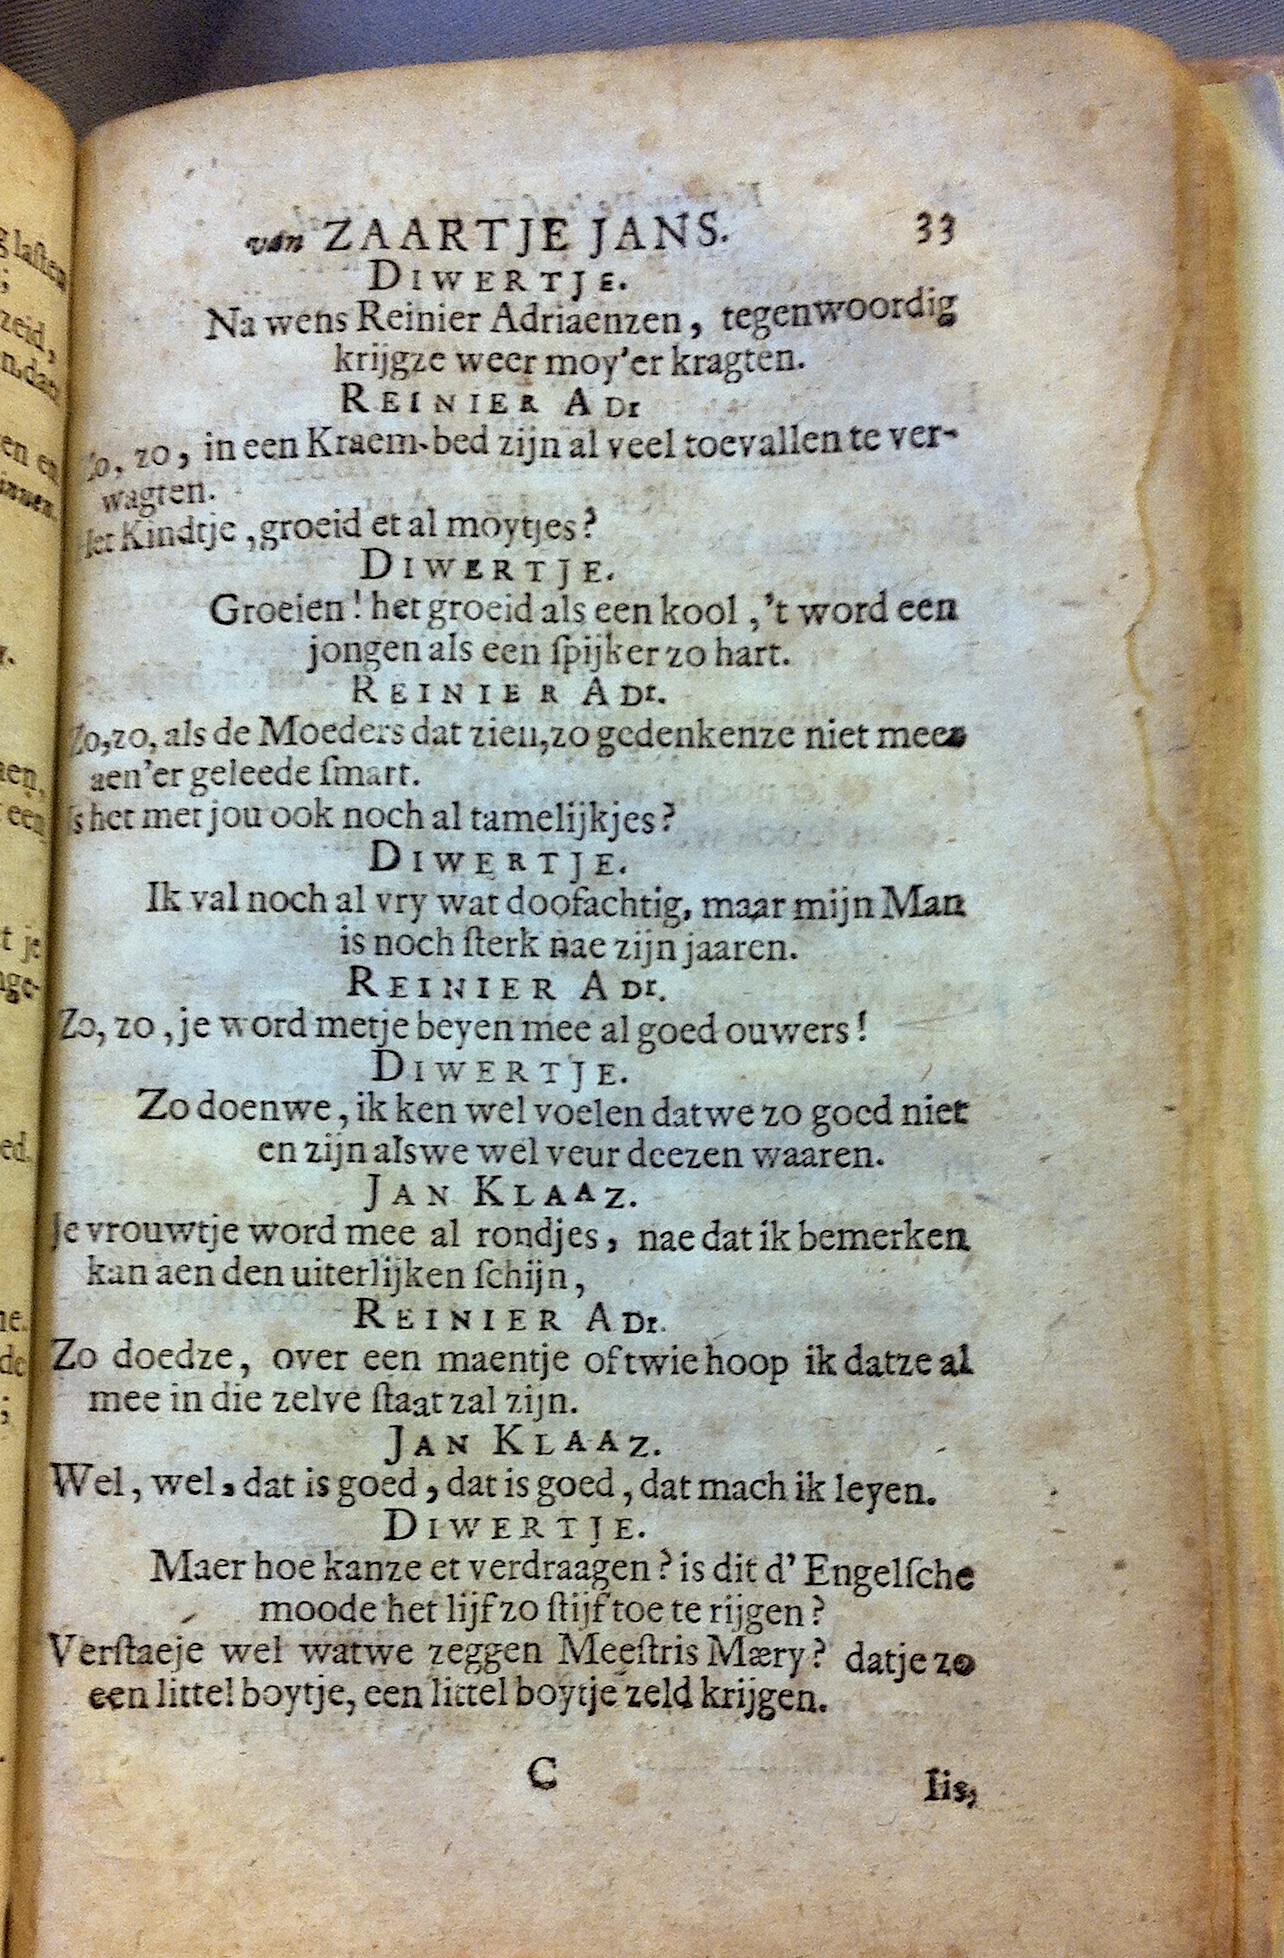 van ZAARTJE JANS. 33
DIWERTJE.
Na wens Reinier Adriaenzen, tegenwoordig
krijgze weer moy'er kragten.
REINIER ADr
Zo, zo, in een Kraem-bed zijn al veel toevallen te ver-
wagten.
Het Kindtje, groeid et al moytjes?
DIWERTJE.
Groeien! het groeid als een kool, 't word een
jongen als een ſpijker zo hart.
REINIER ADr.
Zo, zo, als de Moeders dat zien, zo gedenkenze niet meer
aen'er geleede ſmart.
Is het met jou ook noch al tamelijkjes?
DIWERTJE.
Ik val noch al vry wat doofachtig, maar mijn Man
is noch ſterk nae zijn jaaren.
REINIER ADr.
Zo, zo, je word metje beyen mee al goed ouwers!
DIWERTJE.
Zo doenwe, ik ken wel voelen datwe zo goed niet
en zijn alswe wel veur deezen waaren.
JAN KLAAZ.
Je vrouwtje word mee al rondjes, nae dat ik bemerken
kan aen den uiterlijken ſchijn,
REINIER ADr.
Zo doedze, over een maentje of twie hoop ik datze al
mee in die zelve ſtaat zal zijn.
JAN KLAAZ.
Wel, wel, dat is goed, dat is goed, dat mach ik leyen.
DIWERTJE.
Maer hoe kanze et verdraagen? is dit d' Engelſche
moode het lijf zo ſtijf toe te rijgen?
Verſtaeje wel watwe zeggen Meeſtris Mæry? datje zo
een littel boytje, een littel boytje zeld krijgen.
C
Iis,